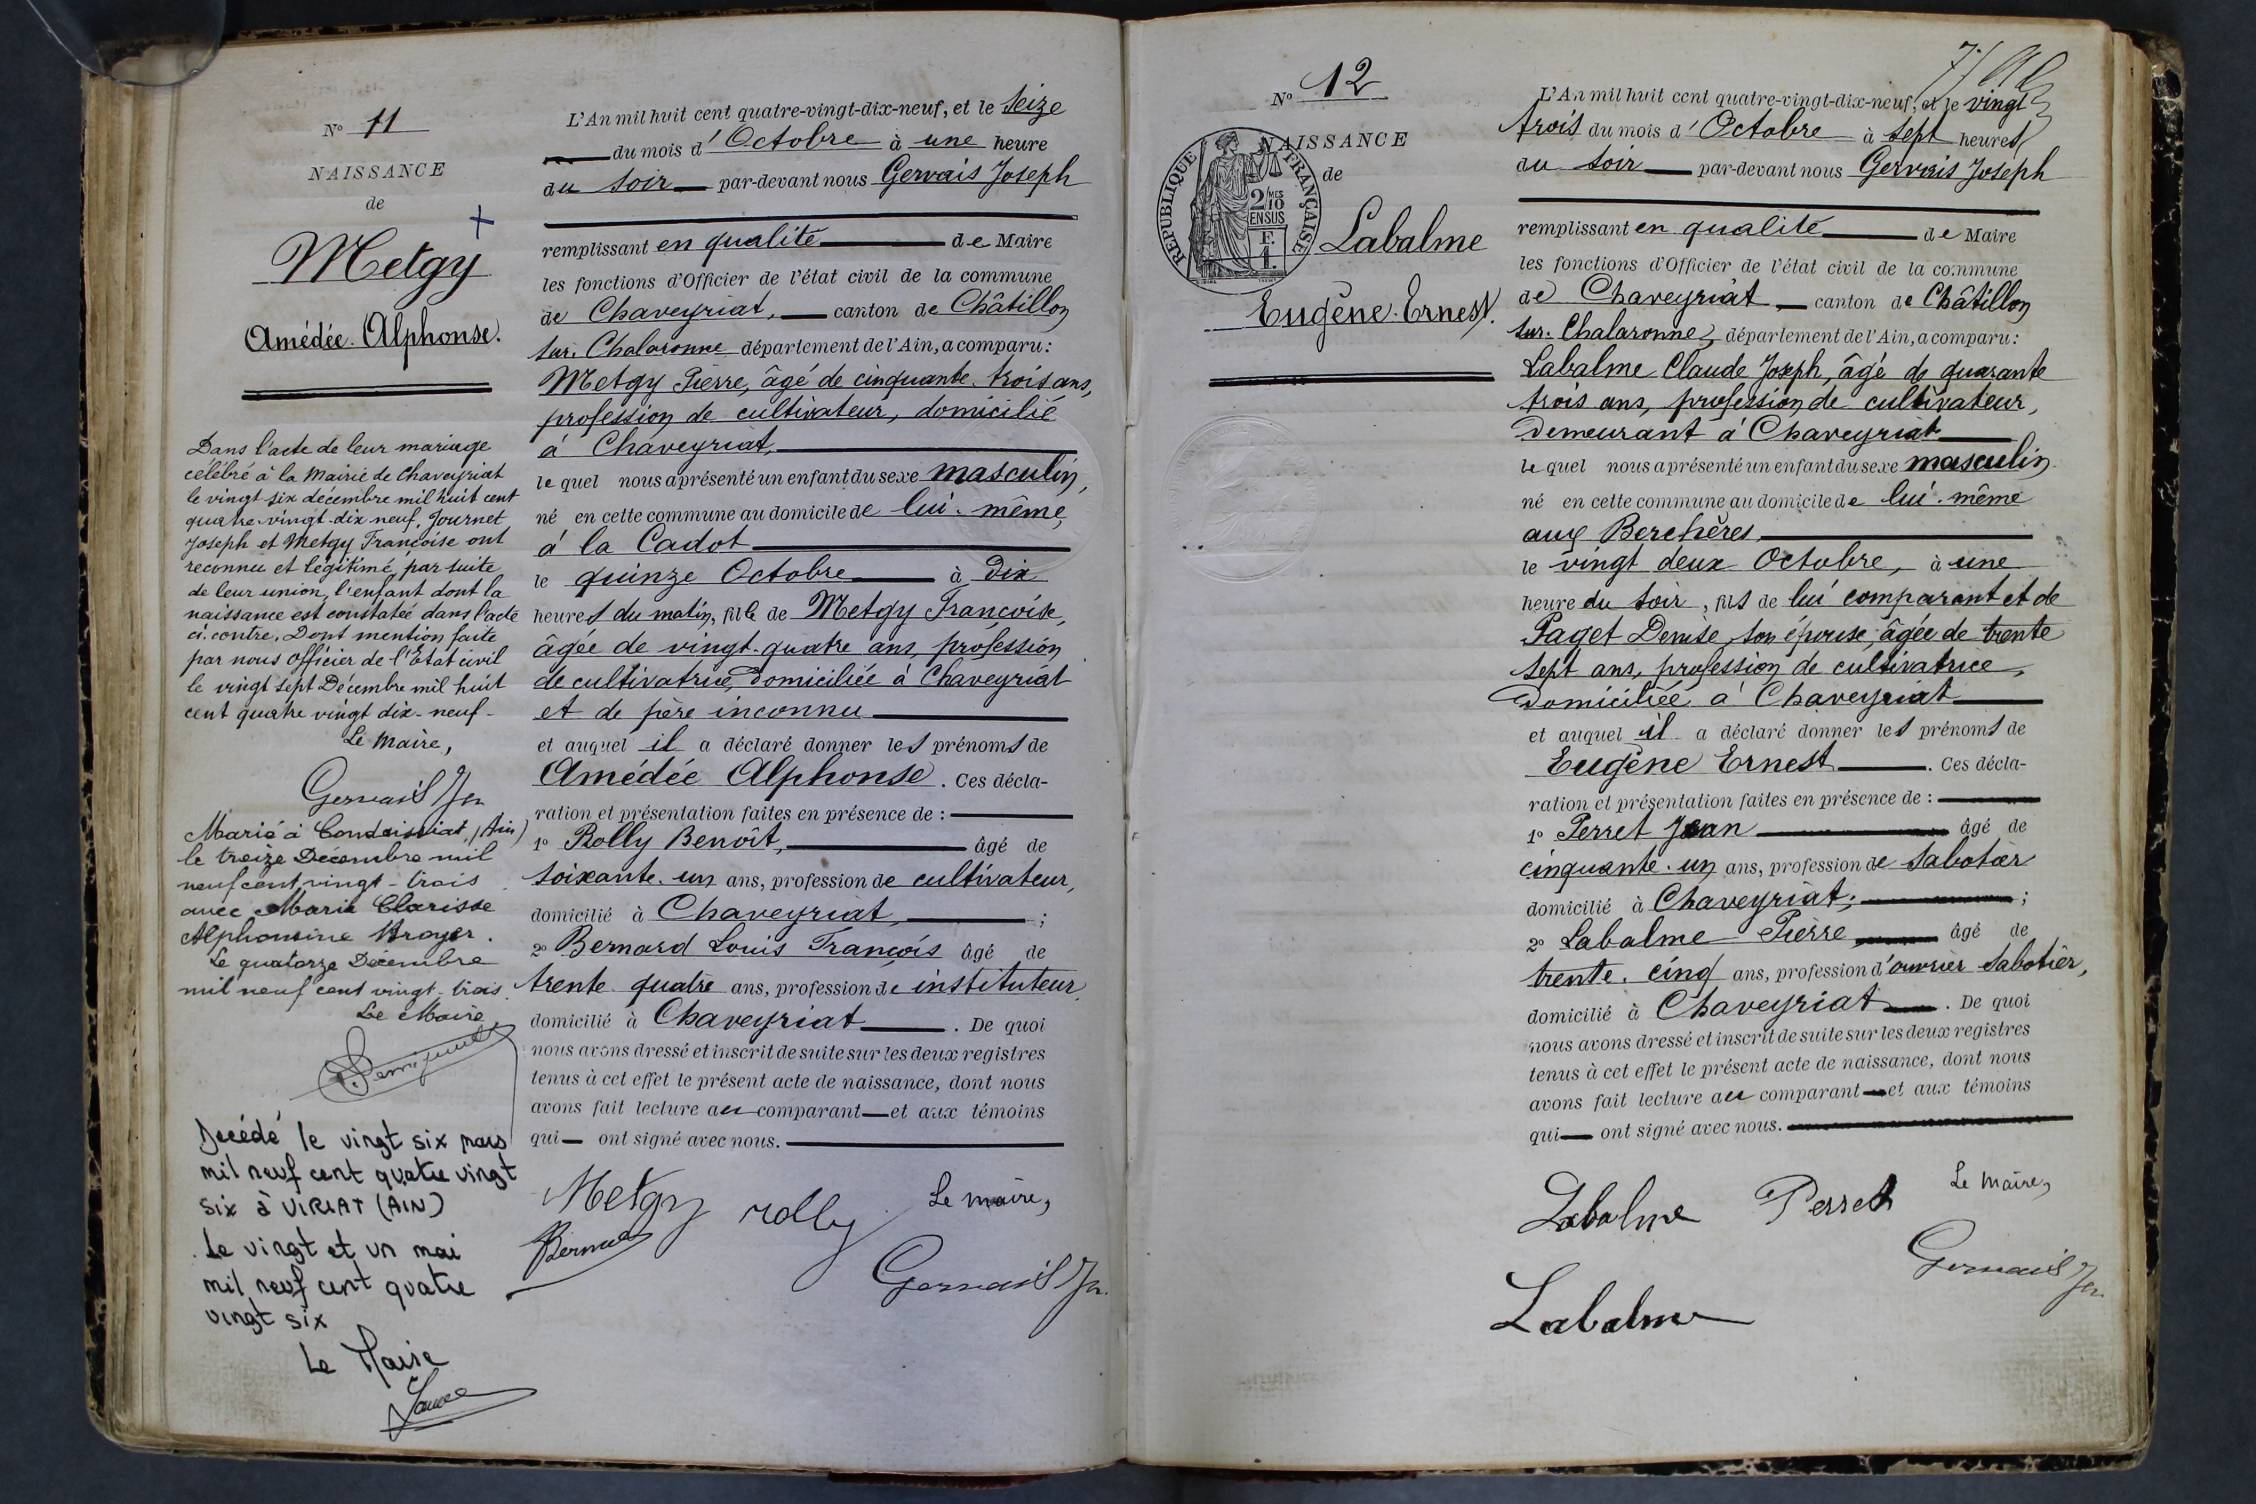 N° 11
NAISSANCE
de
Metgy
Amédée. Alphonse.
Dans l'acte de leur mariage
célébré à la Mairie de Chaveyriat
le vingt six décembre mil huit cent
quatre-vingt-dix neuf, Journet
Joseph et Metgy Françoise ont
reconnu et légitimé, par suite
de leur union, l'enfant dont la
naissance est constatée dans l'acte
ci-contre, Dont mention faite
par nous officier de l'État civil
le vingt sept Décembre mil huit
cent quatre vingt dix-neuf-
Le Maire,
Gervais Jh
Marié à Condeissiat, (Ain)
le treize Décembre mil
neuf cent vingt-trois
avec Marie Clarisse
Alphonsine
Le quatorze Décembre
mil neuf cent vingt-trois.
Le Maire,
Décédé le vingt six mars
mil neuf cent quatre vingt
six à VIRIAT (AIN)
Le vingt et un mai
mil neuf cent quatre
vingt six
Le Maire
L'An mil huit cent quatre-vingt-dix-neuf, et le seize
du mois d'Octobre à une heure
du soir par-devant nous Gervais Joseph
remplissant en qualité de Maire
les fonctions d'Officier de l'état civil de la commune
de Chaveyriat, canton de Châtillon
sur. Chalaronne département de l'Ain, a comparu:
Metgy Pierre, âgé de cinquante. trois ans,
profession de cultivateur, domicilié
à Chaveyriat,
le quel nous a présenté un enfant du sexe masculin,
né en cette commune au domicile de lui-même,
à la Cadot
le quinze Octobre à dix
heures du matin, fils de Metgy Françoise,
âgée de vingt-quatre ans, profession
de cultivatrice, domiciliée à Chaveyriat
et de père inconnu
et auquel il a déclaré donner les prénoms de
Amédée Alphonse. Ces décla-
ration et présentation faites en présence de :
1° Rolly Benoît, âgé de
soixante. un ans, profession de cultivateur,
domicilié à Chaveyriat, ;
2° Bernard Louis François âgé de
trente quatre ans, profession de instituteur,
domicilié à Chaveyriat. De quoi
nous avons dressé et inscrit de suite sur les deux registres
tenus à cet effet le présent acte de naissance, dont nous
avons fait lecture au comparant et aux témoins
qui ont signé avec nous.
Metgy rolly Le maire,
Bernard
Gervais Jh.
7/
N° 12
NAISSANCE
de
RÉPUBLIQUE FRANÇAISE
2 MES
10
EN SUS
F.
1.
Labalme
Eugène. Ernest.
L'An mil huit cent quatre-vingt-dix-neuf, et le vingt
trois du mois d'Octobre à sept heures
du soir par-devant nous Gervais Joseph
remplissant en qualité de Maire
les fonctions d'Officier de l'état civil de la commune
de Chaveyriat, canton de Châtillon
sur. Chalaronne, département de l'Ain, a comparu:
Labalme Claude Joseph, âgé de quarante
trois ans, profession de cultivateur,
demeurant à Chaveyriat
le quel nous a présenté un enfant du sexe masculin.
né en cette commune au domicile de lui-même
aux Berchères,
le vingt deux Octobre, à une
heure du soir, fils de lui comparant et de
Paget Denise, son épouse, âgée de trente
sept ans, profession de cultivatrice,
domiciliée à Chaveyriat
et auquel il a déclaré donner les prénoms de
Eugène Ernest. Ces décla-
ration et présentation faites en présence de :
1° Perret Jean âgé de
cinquante. un ans, profession de sabotier
domicilié à Chaveyriat; ;
2° Labalme Pierre âgé de
trente. cinq ans, profession d'ouvrier sabotier,
domicilié à Chaveyriat. De quoi
nous avons dressé et inscrit de suite sur les deux registres
tenus à cet effet le présent acte de naissance, dont nous
avons fait lecture au comparant et aux témoins
qui ont signé avec nous.
Labalme Perret Le Maire,
Gervais Jh.
Labalme